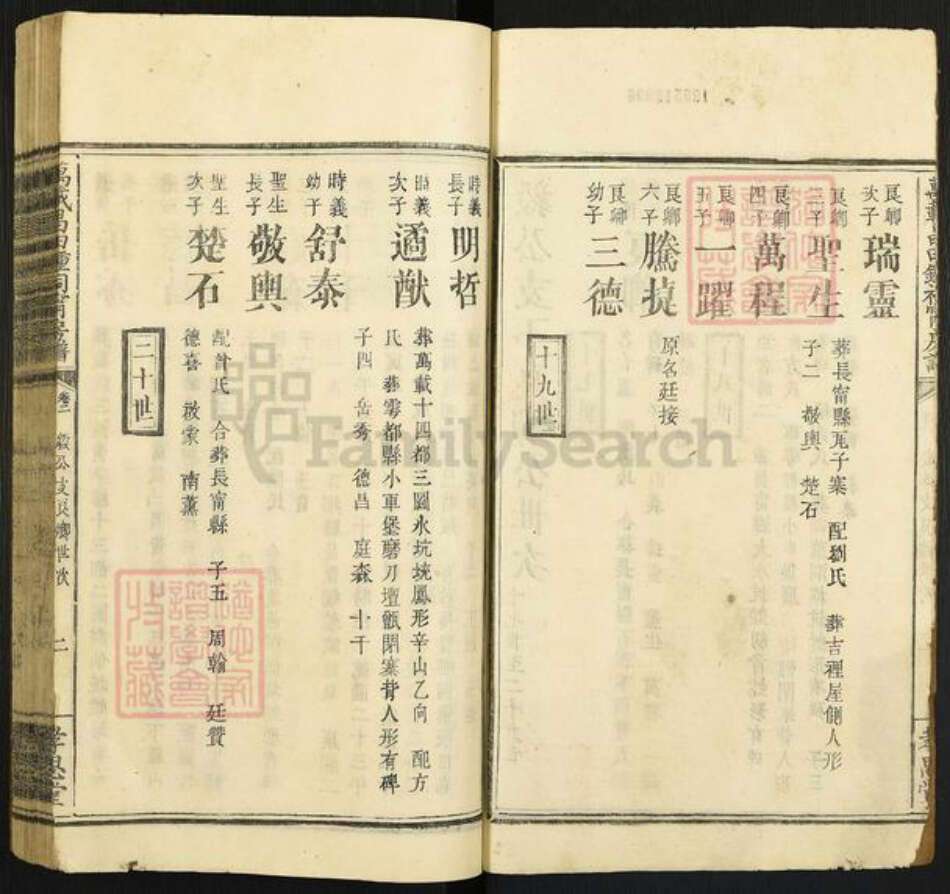 良卿次子 瑞靈
良卿三子 聖生 葬長甯縣瓦子寨 配劉氏 葬吉程屋側人形
子二 敬輿 楚石
良卿四子 萬程
良卿五子 一躍
良卿六子 騰捷 原名廷接
良卿幼子 三德
十九世
時義長子 明哲
時義次子 遁猷 葬萬載十四都三圖永坑塊鳳形辛山乙向 配方
氏 葬雩都縣小軍堡磨刀壇甑閉寨背人形有碑
子四 岳秀 德昌 庭森 十干
時義幼子 舒泰
聖生長子 敬輿
聖生次子 楚石 配曾氏 合葬長甯縣 子五 周翰 廷贊
德喜 啟棠 南薰
二十世
卷二
毅公支良卿世次
二
孝思堂
FamilySearch